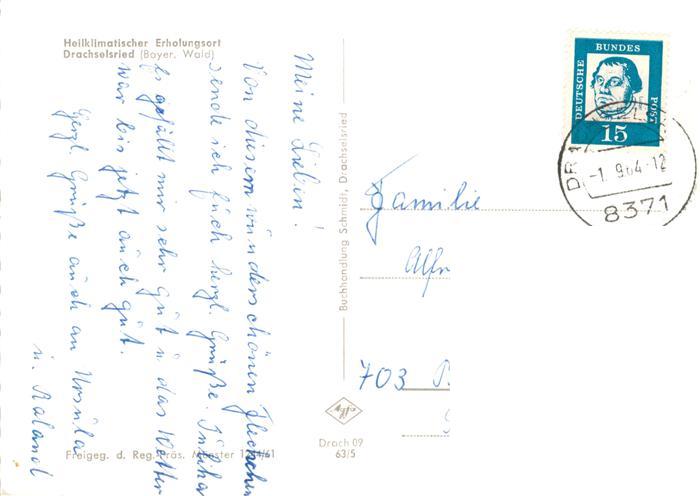 Heilklimatischer Erholungsort
Drachselsried (Bayer. Wald)
Meine Lieben!
Von diesem wunderschönen Fleckchen
sende ich Euch herzl. Grüße.
Es gefällt mir sehr gut u. das Wetter
war bis jetzt auch gut.
Herzl. Grüße auch an Ursula
u. Roland
Freigeg. d. Reg. Präs. Münster
Buchhandlung Schmidt, Drachselsried
Agfa
Drach 09
63/5
DEUTSCHE BUNDES POST
15
-1. 9 64-12
8371
Familie
Alfr
703